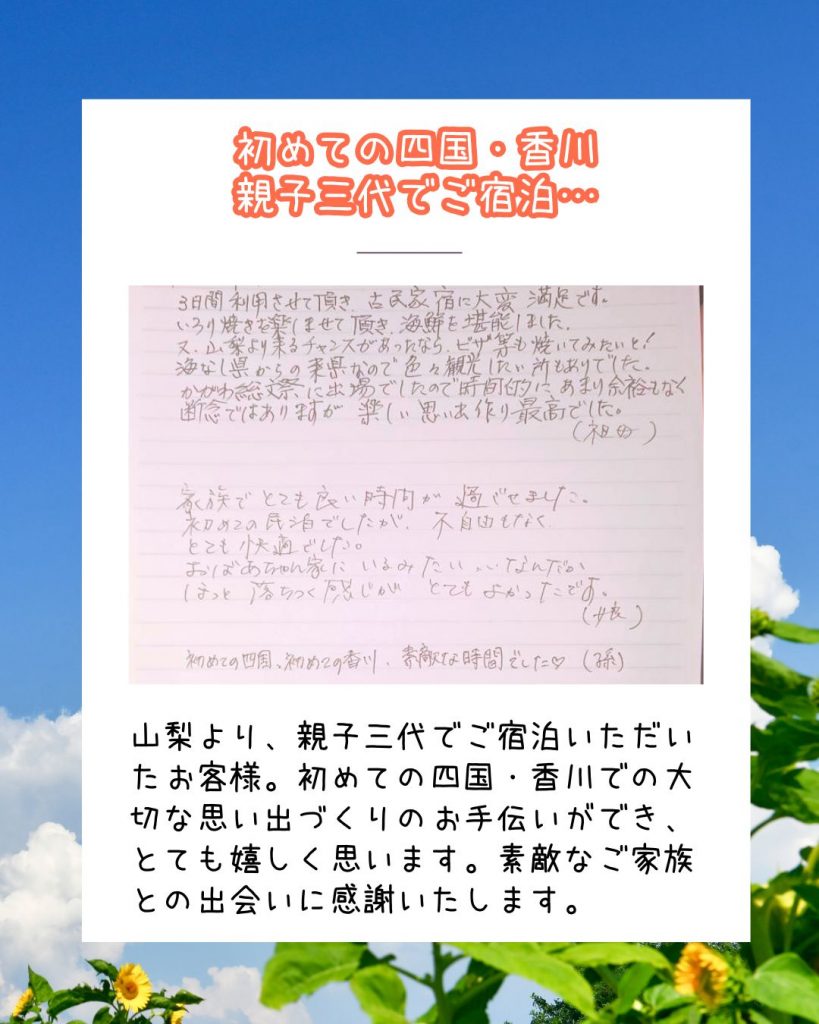 初めての四国・香川
親子三代でご宿泊…
3日間利用させて頂き、古民家宿に大変満足です。
いろり焼きを楽しませて頂き、海鮮を堪能しました。
又、山梨より来るチャンスがあったなら、ピザ等も焼いてみたいと!
海なし県からの来県なので色々観光したい所もありでした。
かがわ総文祭に出場でしたので時間的にあまり余裕もなく
断念ではありますが楽しい思い出作り最高でした。
(祖母)
家族でとても良い時間が過ごせました。
初めての民泊でしたが、不自由もなく
とても快適でした。
おばあちゃん家にいるみたい、、なんだか
ほっと落ちつく感じがとてもよかったです。
(娘)
初めての四国、初めての香川、素敵な時間でした♡(孫)
山梨より、親子三代でご宿泊いただい
たお客様。初めての四国・香川での大
切な思い出づくりのお手伝いができ、
とても嬉しく思います。素敵なご家族
との出会いに感謝いたします。